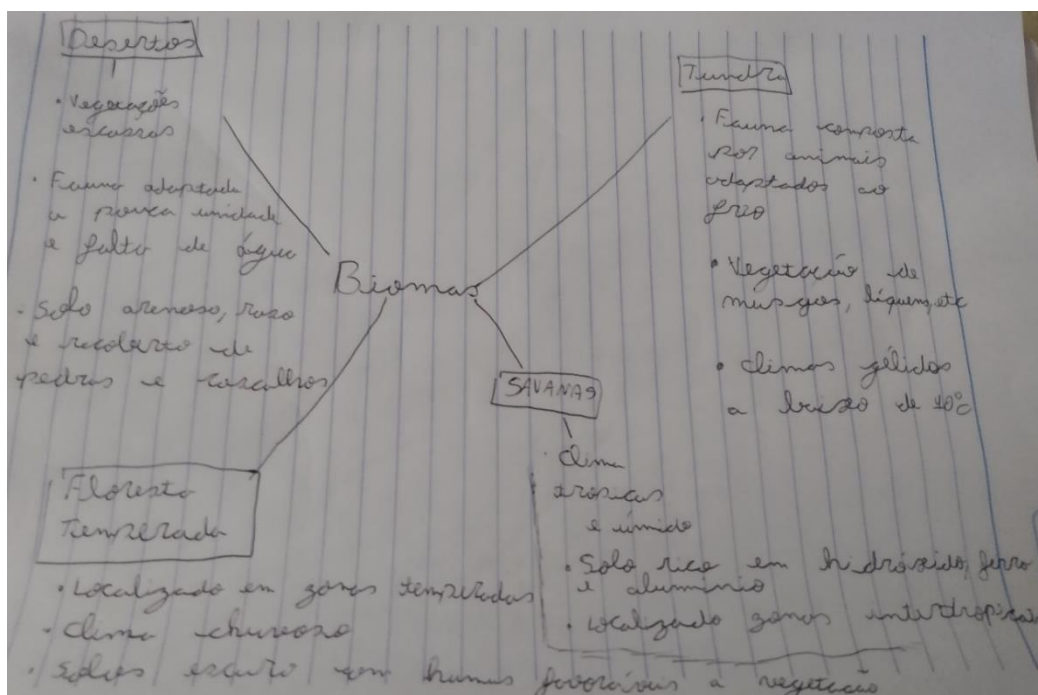 Desertos
• Vegetações
escassas
• Fauna adaptada
a pouca umidade
e falta de água
• Solo arenoso, raso
e recoberto de
pedras e cascalhos
Tundra
• Fauna composta
por animais
adaptados ao
frio
• Vegetação de
musgos, líquens, etc
• Climas gélidos
a baixo de 10°c
Biomas
SAVANAS
• Clima
tropicas
e úmido
• Solo rico em hidróxido, ferro
e alumínio
• Localizado zonas intertropicais
Floresta
Temperada
• Localizado em zonas temperadas
• Clima chuvoso
• Solos escuro com humus favoráveis a vegetação